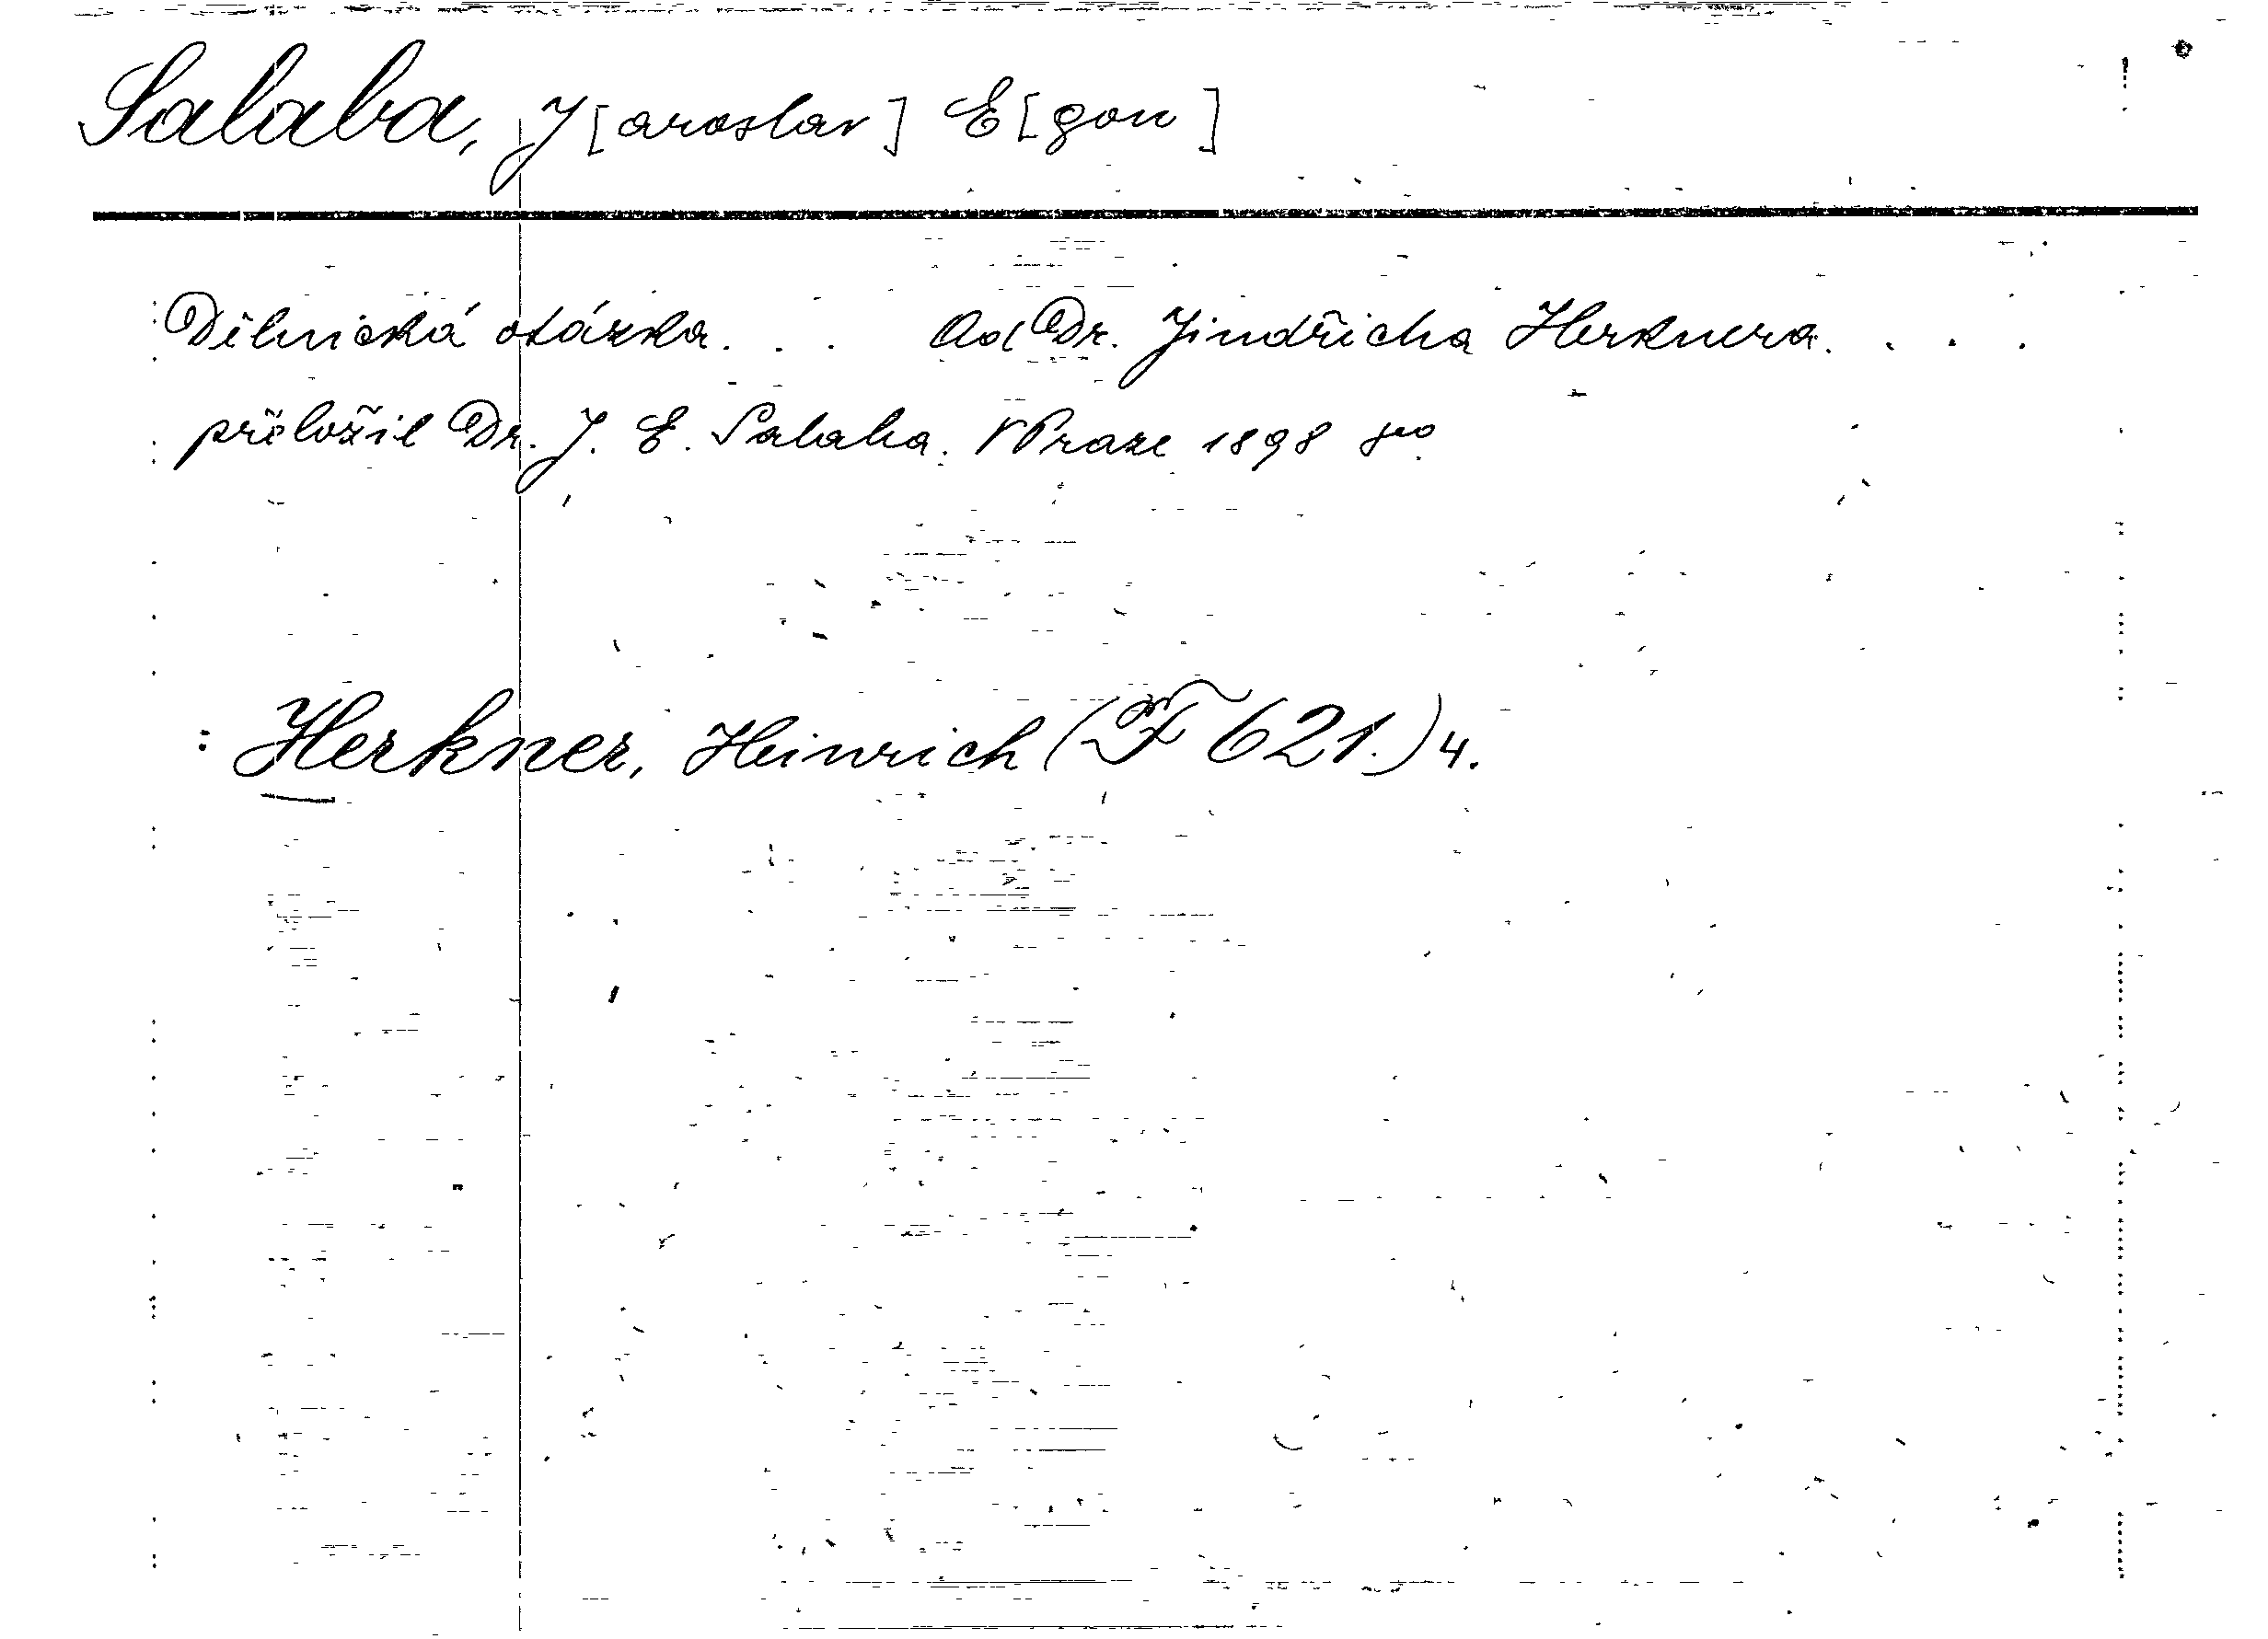 Salaba, J[aroslav] E[gon]
Dělnická otázka. . . Od Dr. Jindřicha Herknera. . . .
přeložil Dr. J. E. Salaba. V Praze 1898 8vo
: Herkner, Heinrich (F 621.) 4.